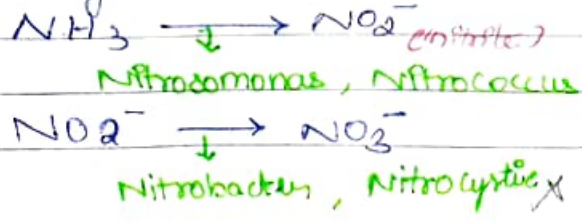 NH3 → NO2⁻ (nitrite)
Nitrosomonas, Nitrococcus
NO2⁻ → NO3⁻
Nitrobacter, Nitrocystic